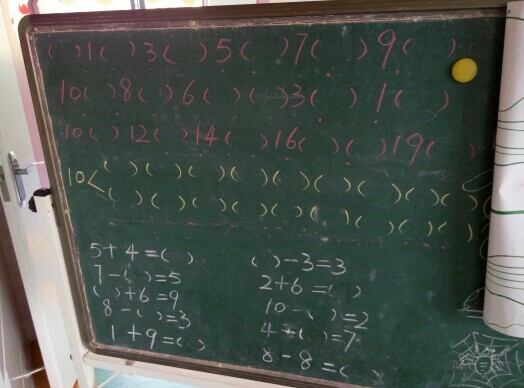 ( )1( )3( )5( )7( )9( )
10( )8( )6( )( )3( )1( )
10( )12( )14( )16( )( )19( )
10<( )( )( )( )( )( )( )( )( )
( )( )( )( )( )( )( )( )( )
5+4=( )
7-( )=5
( )+6=9
8-( )=3
1+9=( )
( )-3=3
2+6=( )
10-( )=2
4+( )=7
8-8=( )